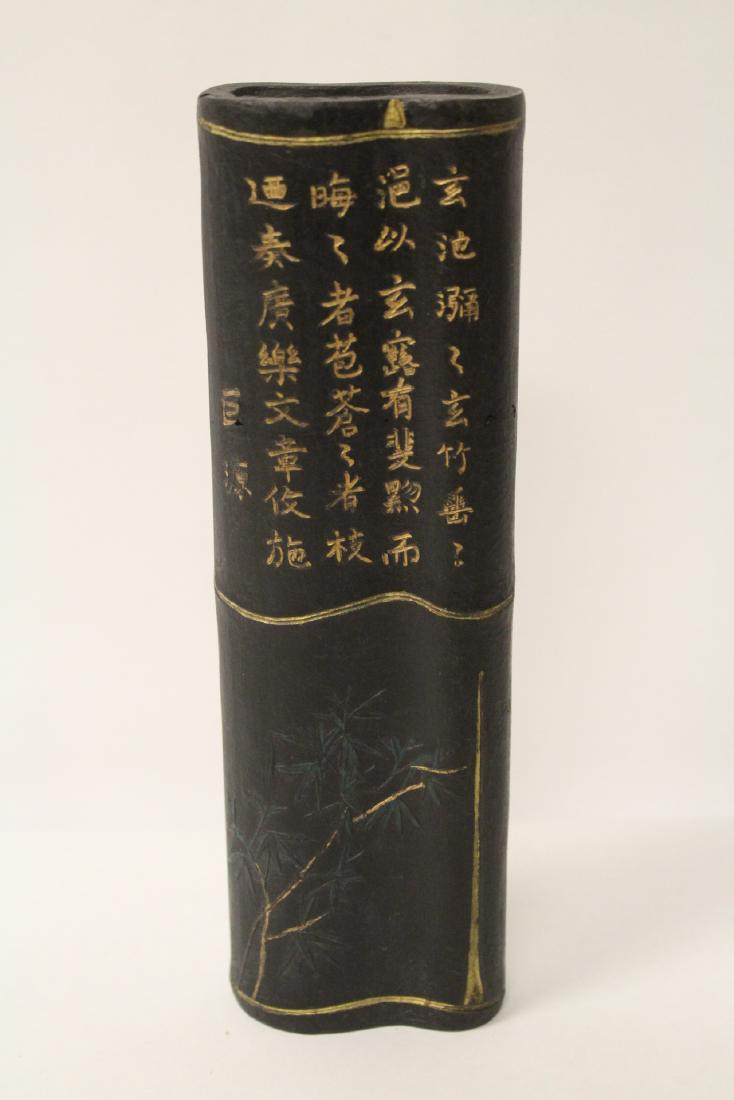 玄池瀰〻玄竹垂〻
浥以玄露有斐黟而
晦〻者苞蒼〻者枝
迺奏廣樂文章攸施
巨源